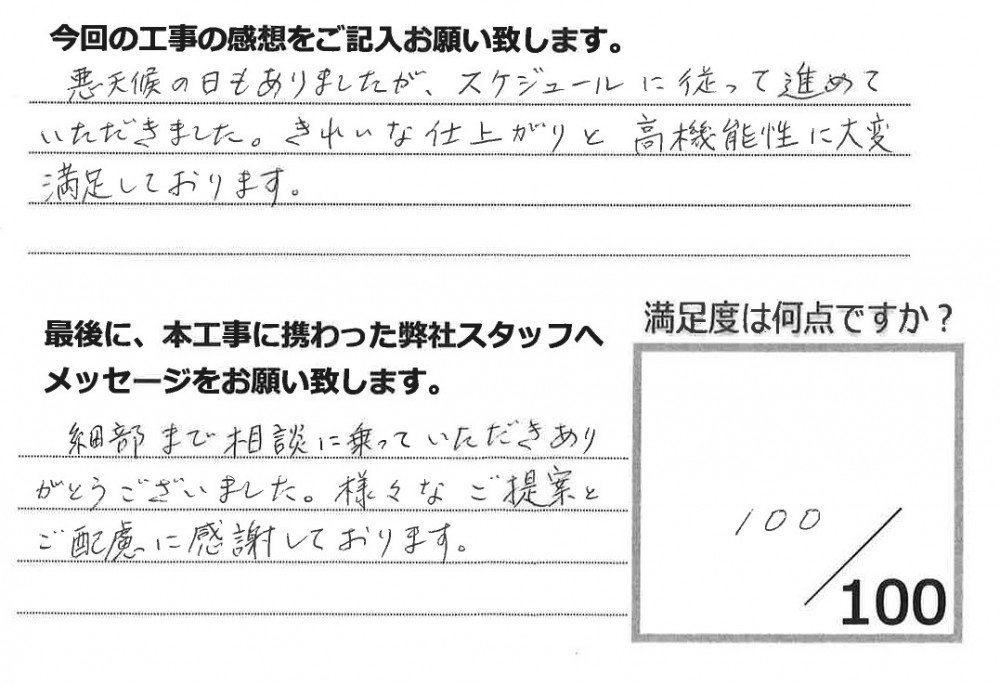 今回の工事の感想をご記入お願い致します。
悪天候の日もありましたが、スケジュールに従って進めて
いただきました。きれいな仕上がりと高機能性に大変
満足しております。
最後に、本工事に携わった弊社スタッフへ
メッセージをお願い致します。
細部まで相談に乗っていただきあり
がとうございました。様々なご提案と
ご配慮に感謝しております。
満足度は何点ですか？
100
/100